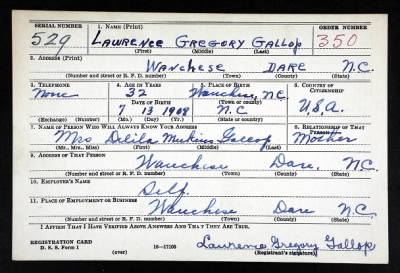 SERIAL NUMBER 1. NAME (Print) ORDER NUMBER
529 LAWRENCE GREGORY GALLOP 350
(First) (Middle) (Last)
2. ADDRESS (Print)
WANCHESE DARE N.C.
(Number and street or R. F. D. number) (Town) (County) (State)
3. TELEPHONE 4. AGE IN YEARS 5. PLACE OF BIRTH 6. COUNTRY OF CITIZENSHIP
None 32 Wanchese, N.C.
DATE OF BIRTH (Town or county)
7 13 1908 N.C. U.S.A.
(Exchange) (Number) (Mo.) (Day) (Yr.) (State or country)
7. NAME OF PERSON WHO WILL ALWAYS KNOW YOUR ADDRESS 8. RELATIONSHIP OF THAT PERSON
Mrs Delila Gallop Mother
(Mr., Mrs., Miss) (First) (Middle) (Last)
9. ADDRESS OF THAT PERSON
Wanchese Dare, N.C.
(Number and street or R. F. D. number) (Town) (County) (State)
10. EMPLOYER'S NAME
Self.
11. PLACE OF EMPLOYMENT OR BUSINESS
Wanchese Dare N.C.
(Number and street or R. F. D. number) (Town) (County) (State)
I AFFIRM THAT I HAVE VERIFIED ABOVE ANSWERS AND THAT THEY ARE TRUE.
REGISTRATION CARD
D. S. S. Form 1 16-17105 Lawrence Gregory Gallop
(over) (Registrant's signature)